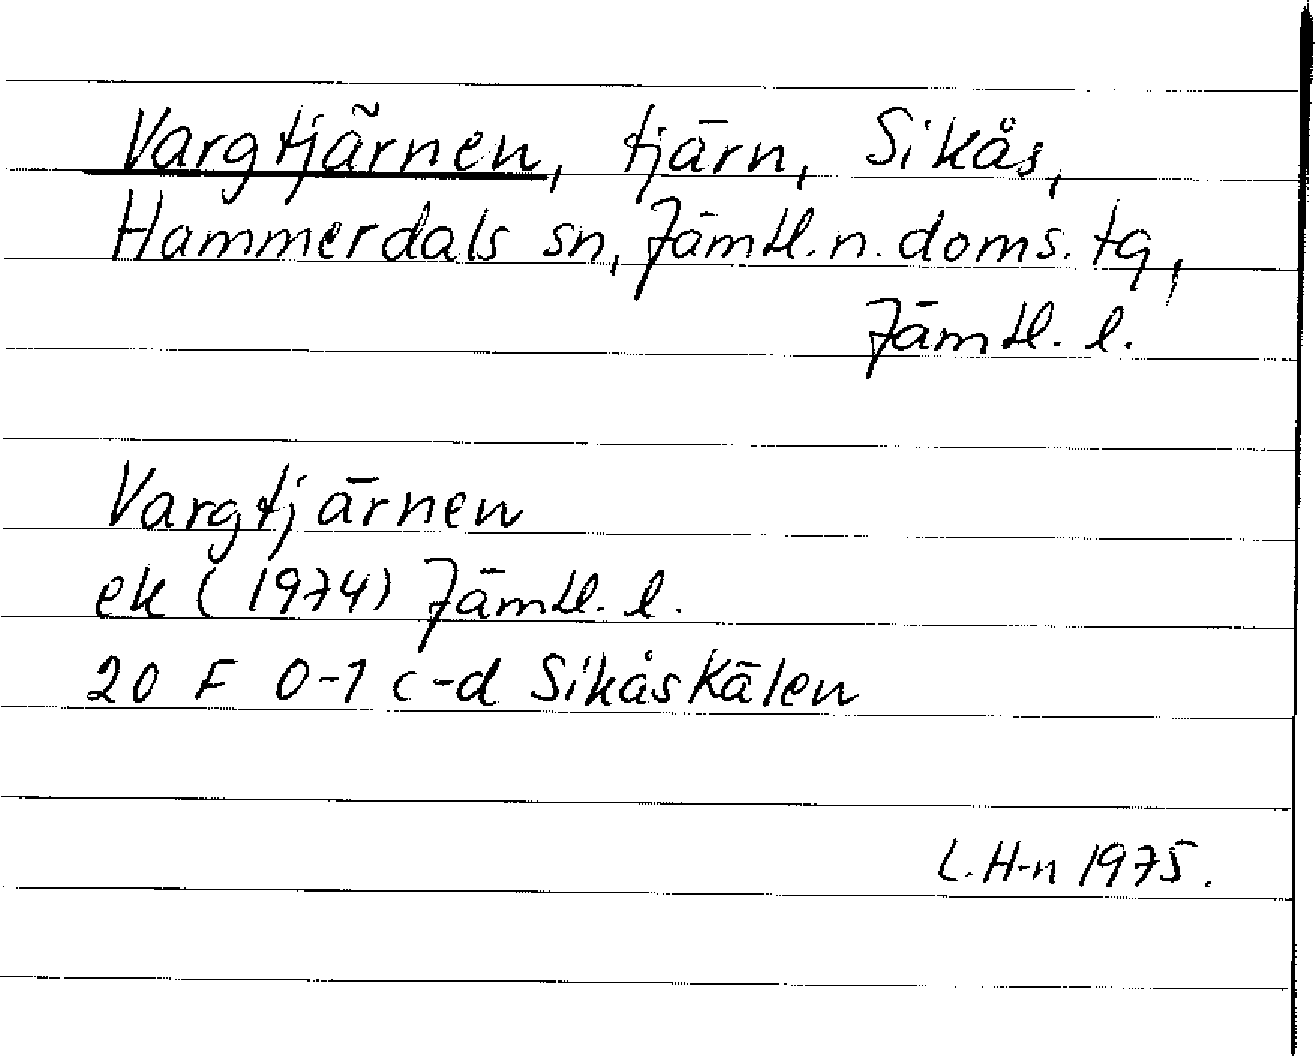 Vargtjärnen, tjärn, Sikås,
Hammerdals sn, Jämtl. n. doms. tg,
Jämtl. l.
Vargtjärnen
ek (1974) Jämtl. l.
20 F 0-1 c-d Sikåskälen
L. H-n 1975.